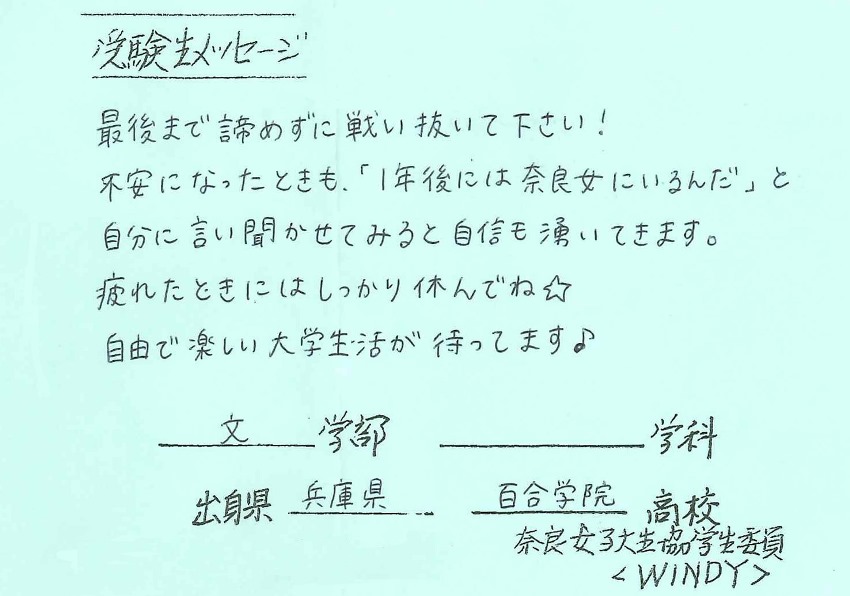 受験生メッセージ
最後まで諦めずに戦い抜いて下さい!
不安になったときも、「1年後には奈良女にいるんだ」と
自分に言い聞かせてみると自信も湧いてきます。
疲れたときにはしっかり休んでね☆
自由で楽しい大学生活が待ってます♪
文学部 学科
出身県 兵庫県 百合学院 高校
奈良女子大生協学生委員
<WINDY>